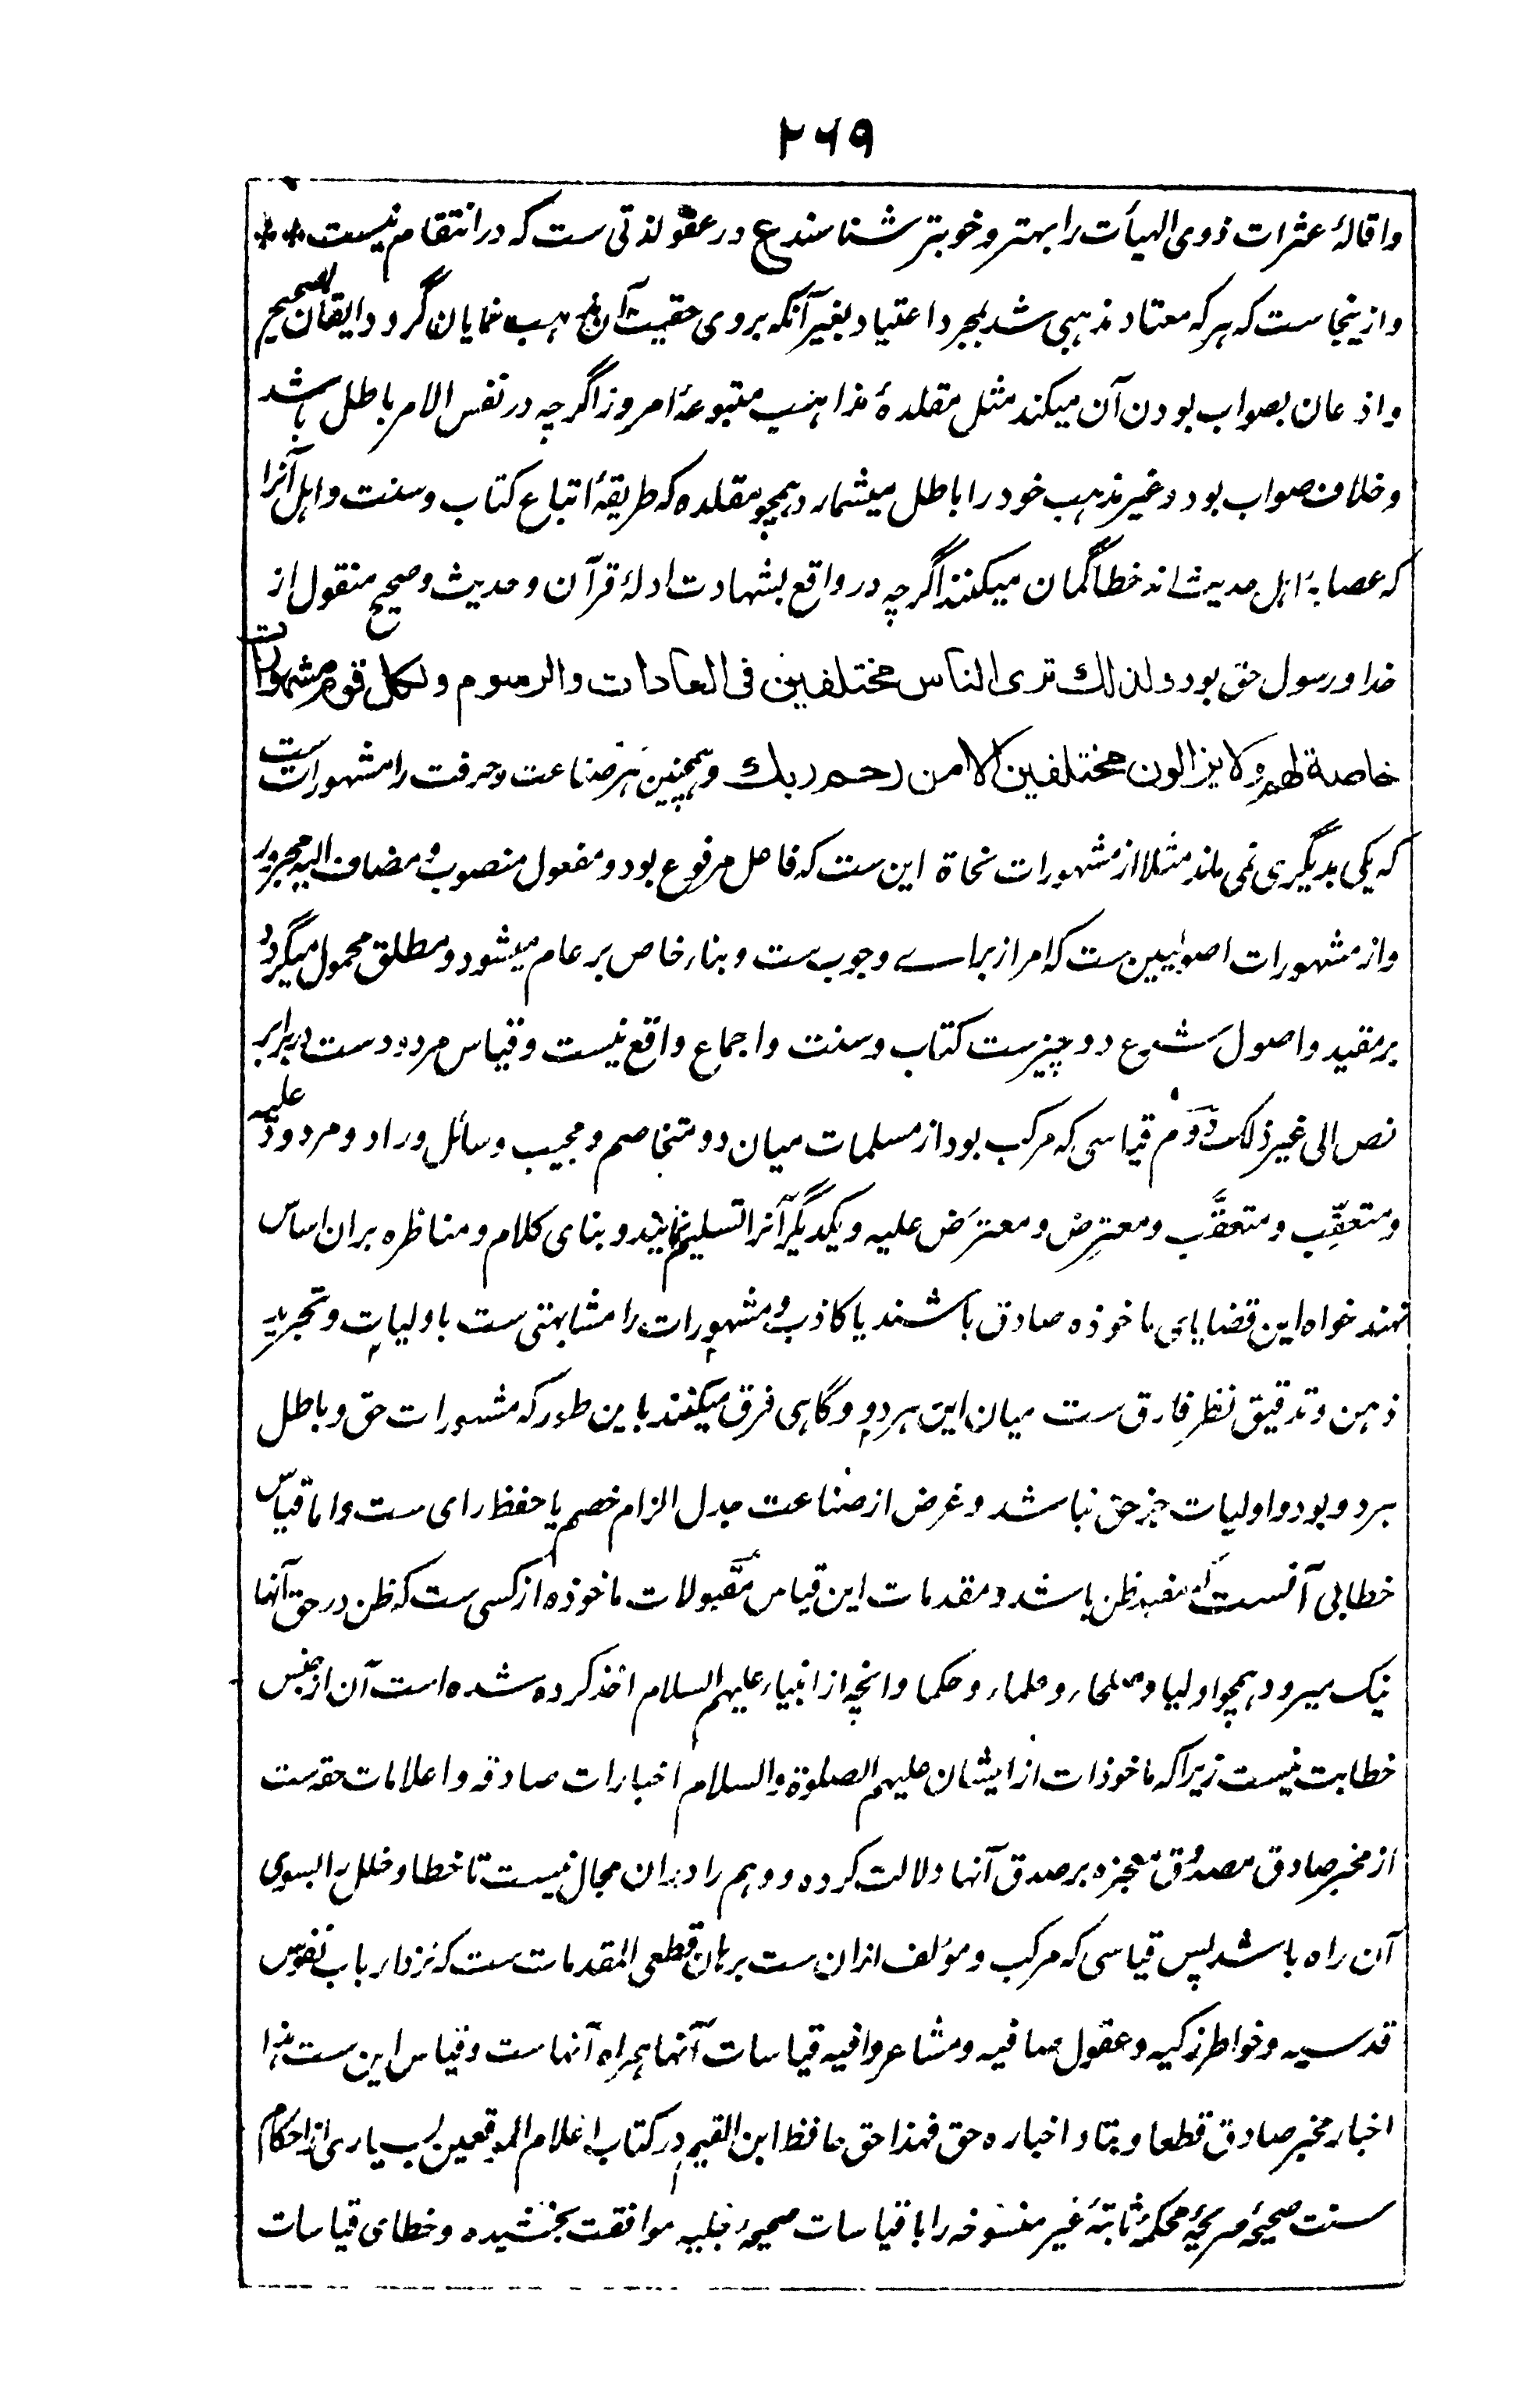 ۲۶۹
واقالهٔ عثرات ذوی الهیأت را بهتر و خوبتر شناسند ع در عفو لذتی ست که در انتقام نیست **
وازینجاست که هر که معتاد مذهبی شد بمجرد اعتیاد بغیر آنکه بروی حقیت آن مذهب نمایان گردد ایقان صحیح
واذعان بصواب بودن آن میکند مثل مقلدهٔ مذاهب متبوعهٔ امروز اگرچه در نفس الامر باطل باشد
وخلاف صواب بود و غیر مذهب خود را باطل میشمارد همچو مقلده که طریقهٔ اتباع کتاب و سنت و اهل آنرا
که عصابهٔ اهل حدیث اند خطا گمان میکنند اگرچه در واقع بشهادت ادلهٔ قرآن و حدیث و صحیح منقول از
خدا و رسول حق بود ولذلك ترى الناس مختلفين فى العادات والرسوم ولكل قوم مشهورات
خاصة لهم ولا يزالون مختلفين الا من رحم ربك وهمچنین هر صناعت و حرفت را مشهورات ست
که یکی بدیگری نمی ماند مثلا از مشهورات نحاة این ست که فاعل مرفوع بود و مفعول منصوب و مضاف الیه مجرور
واز مشهورات اصولیین ست که امر از برای وجوب ست و بناء خاص بر عام میشود و مطلق محمول میگردد
بر مقید و اصول شرع دو چیزست کتاب و سنت و اجماع واقع نیست و قیاس مردود ست در برابر
نص الی غیر ذلک دوم قیاسی که مرکب بود از مسلمات میان دو متخاصم و مجیب و سائل و راد و مردود علیه
و متعقِّب و متعقَّب و معترِض و معترَض علیه و یکدیگر آنرا تسلیم نمایند و بنای کلام و مناظره بران اساس
نهند خواه این قضایای ماخوذه صادق باشند یا کاذب و مشهورات را مشابهتی ست باولیات و تجرید
ذهن و تدقیق نظر فارق ست میان این هردو و گاهی فرق میکنند باین طور که مشهورات حق و باطل
هردو بود و اولیات جز حق نباشد و غرض از صناعت جدل الزام خصم یا حفظ رای ست و اما قیاس
خطابی آنست که مفید ظن باشد و مقدمات این قیاس مقبولات ماخوذه از کسی ست که ظن در حق آنها
نیک میرود همچو اولیا و صلحاء و علماء و حکما و انچه از انبیاء علیهم السلام اخذ کرده شده است آن از جنس
خطابت نیست زیراکه ماخوذات از ایشان علیهم الصلوة والسلام اخبارات صادقه و اعلامات حقه ست
از مخبر صادق مصدوق معجزه بر صدق آنها دلالت کرده و وهم را دران مجال نیست تا خطا و خلل را بسوی
آن راه باشد پس قیاسی که مرکب و مؤلف ازان ست برهان قطعی المقدمات ست که نزد ارباب نفوس
قدسیه و خواطر زکیه و عقول صافیه و مشاعر وافیه قیاسات آنها همراه آنهاست و قیاس این ست هذا
اخبار مخبر صادق قطعا و بتا و اخباره حق فهذا حق حافظ ابن القیم در کتاب اعلام الموقعین بسیاری از احکام
سنت صحیحهٔ صریحهٔ محکمهٔ ثابتهٔ غیر منسوخه را با قیاسات صحیحهٔ جلیه موافقت بخشیده و خطای قیاسات